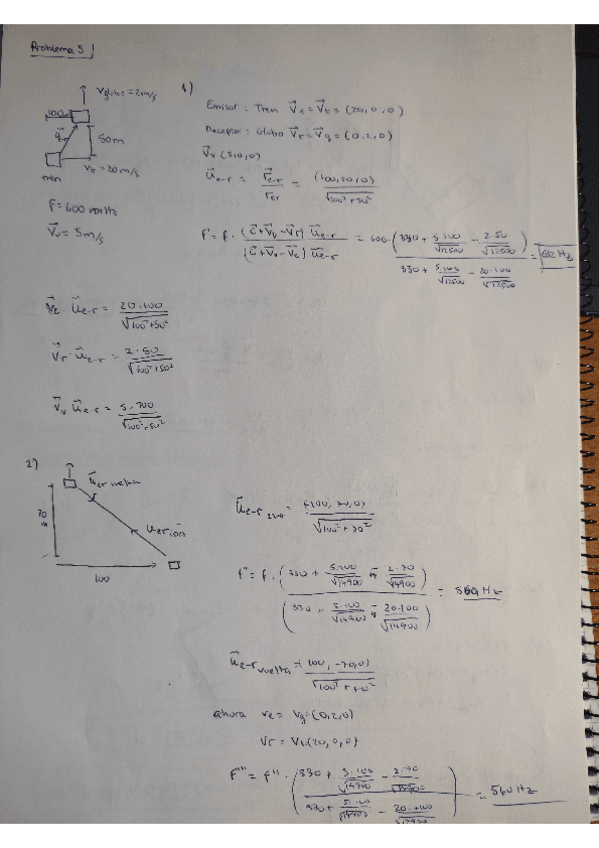 Problema 5
v globo = 2 m/s
1)
100m
50m
tren
vt = 20 m/s
f = 600 Hz
V⃗v = 5 m/s
Emisor: Tren V⃗e = V⃗t = (20,0,0)
Receptor: Globo V⃗r = V⃗g = (0,2,0)
V⃗v (5,0,0)
u⃗e-r = r⃗e-r / rer = (100,50,0) / √100²+50²
f' = f · (c⃗+V⃗v-V⃗r) u⃗e-r / (c⃗+V⃗v-V⃗e) u⃗e-r = 600 · (330 + 5·100/√12500 - 2·50/√12500) / (330 + 5·100/√12500 - 20·100/√12500) =
V⃗e · u⃗e-r = 20·100 / √100²+50²
V⃗r · u⃗e-r = 2·50 / √100²+50²
V⃗v u⃗e-r = 5·100 / √100²+50²
2)
u⃗er vuelta
70
uer ida
100
u⃗e-r ida = / √100²+70²
f'' = f · (330 + 5·100/√14900 2·70/√14900) / (330 + 5·100/√14900 20·100/√14900) = Hz
u⃗e-r vuelta = (100, -70,0) / √100²+70²
ahora ve = Vg = (0,2,0)
Vr = Vt (20,0,0)
f''' = f'' · (330 + 5·100/√14900 - 2·70/√14900) / (330 + 5·100/√14900 - 20·100/√14900) = 540 Hz